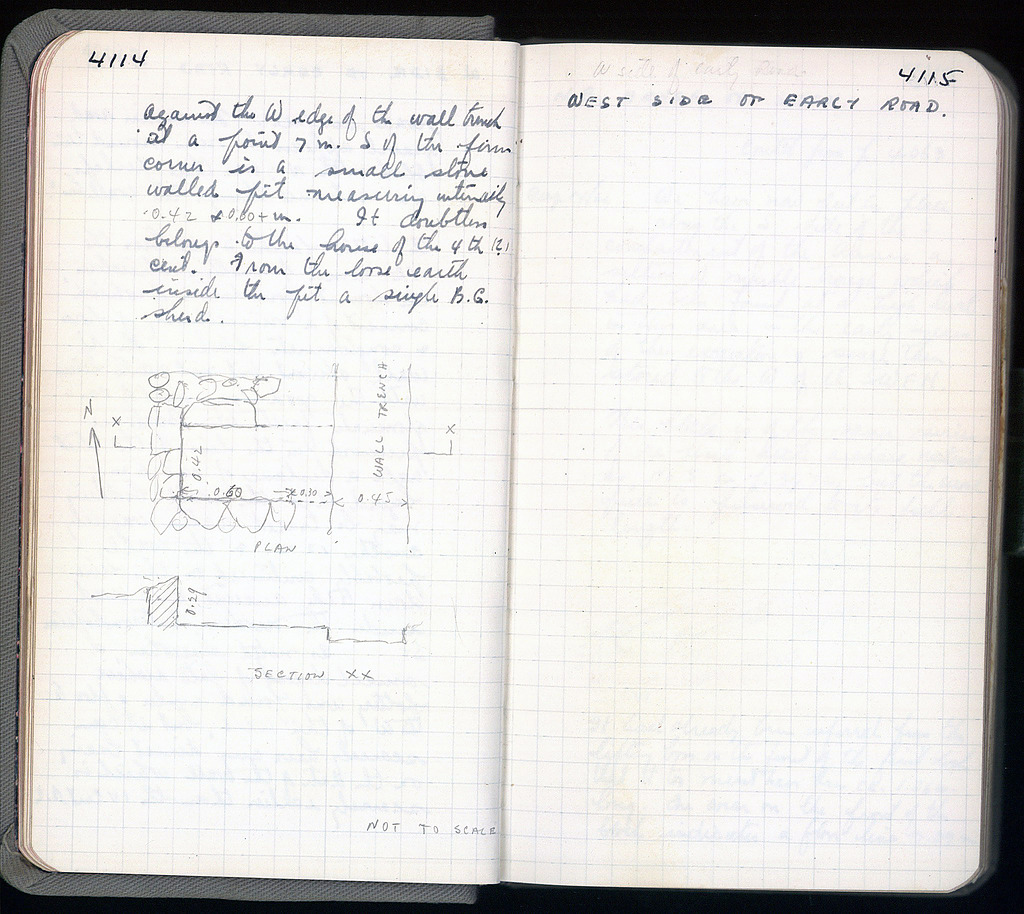 4114
against the W edge of the wall trench
at a point 7 m. S of the
corner is a small stone
walled pit measuring internally
0.42 x 0.60+ m. It doubtless
belongs to the house of the 4th (?)
cent. From the loose earth
inside the pit a single B.G.
sherd.
N
X
X
WALL TRENCH
0.42
0.60
0.30
0.45
PLAN
0.29
SECTION XX
NOT TO SCALE
4115
W side of early Road
WEST SIDE OF EARLY ROAD.